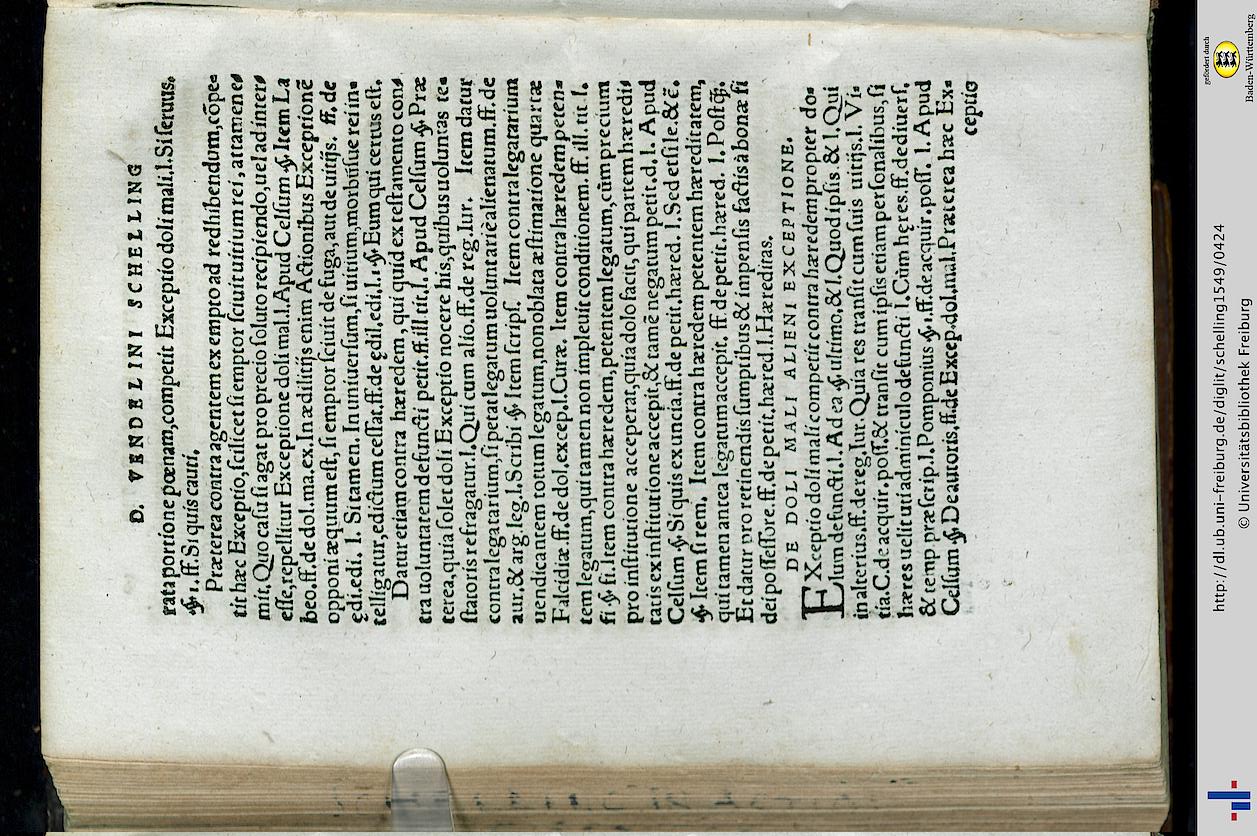 D. VENDELINI SCHELLING
rata portione pœnam, competit Exceptio doli mali. l. Si seruus.
§. 1. ff. Si quis cauti.
Præterea contra agentem ex empto ad redhibendum, cōpe-
tit hæc Exceptio, scilicet si emptor sciuit uitium rei, attamen e-
mit. Quo casu si agat pro precio soluto recipiendo, uel ad inter-
esse, repellitur Exceptione doli mal. l. Apud Celsum §. Item La
beo. ff. de dol. ma. ex. In ædilitijs enim Actionibus Exceptionē
opponi æquum est, si emptor sciuit de fuga, aut de uitijs. ff. de
ędi. edi. l. Si tamen. In uniuersum, si uitium, morbúsue rei in-
telligatur, edictum cessat. ff. de ędil. edi. l. 1. §. Eum qui certus est.
Datur etiam contra hæredem, qui quid ex testamento con-
tra uoluntatem defuncti petit. ff. ill tit. l. Apud Celsum §. Præ
terea. quia solet dolì Exceptio nocere his, quibus uoluntas te-
statoris refragatur. l. Qui cum alio. ff. de reg. Iur. Item datur
contra legatarium, si petat legatum uoluntariè alienatum. ff. de
aur. & arg. leg. l. Scribi §. Item scrips. Item contra legatarium
uendicantem totum legatum, non oblata æstimatione quartæ
Falcidiæ. ff. de dol. excep. l. Curæ. Item contra hæredem peten-
tem legatum, qui tamen non impleuit conditionem. ff. ill. tit l.
fi. §. fi. Item contra hæredem, petentem legatum, cùm precium
pro institutione acceperat, quia dolo facit, qui partem hæredi-
tatis ex institutione accepit, & tamē negatum petit. d. l. Apud
Celsum §. Si quis ex uncia. ff. de petit. hæred. l. Sed etsi le. & C̄.
§. Item si rem. Item contra hæredem petentem hæreditatem,
qui tamen antea legatum accepit. ff. de petit. hæred. l. Postq̄.
Et datur pro retinendis sumptibus & impensis factis à bonæ fi
dei possessore. ff. de petit. hæred. l. Hæreditas.
DE DOLI MALI ALIENI EXCEPTIONE.
EXceptio doli mali competit contra hæredem propter do-
lum defuncti. l. Ad ea §. ultimo. & l. Quod ipsis. & l. Qui
in alterius. ff. de reg. Iur. Quia res transit cum suis uitijs. l. Vi-
tia. C. de acquir. poss. & transit cum ipsis etiam personalibus, si
hæres uelit uti adminiculo defuncti l. Cùm hęres. ff. de diuers.
& temp præscrip. l. Pomponius §. 1. ff. de acquir. poss. l. Apud
Celsum §. De auctoris. ff. de Excep. dol. mal. Præterea hæc Ex-
ceptio
gefördert durch
Baden-Württemberg
http://dl.ub.uni-freiburg.de/diglit/schelling1549/0424
© Universitätsbibliothek Freiburg